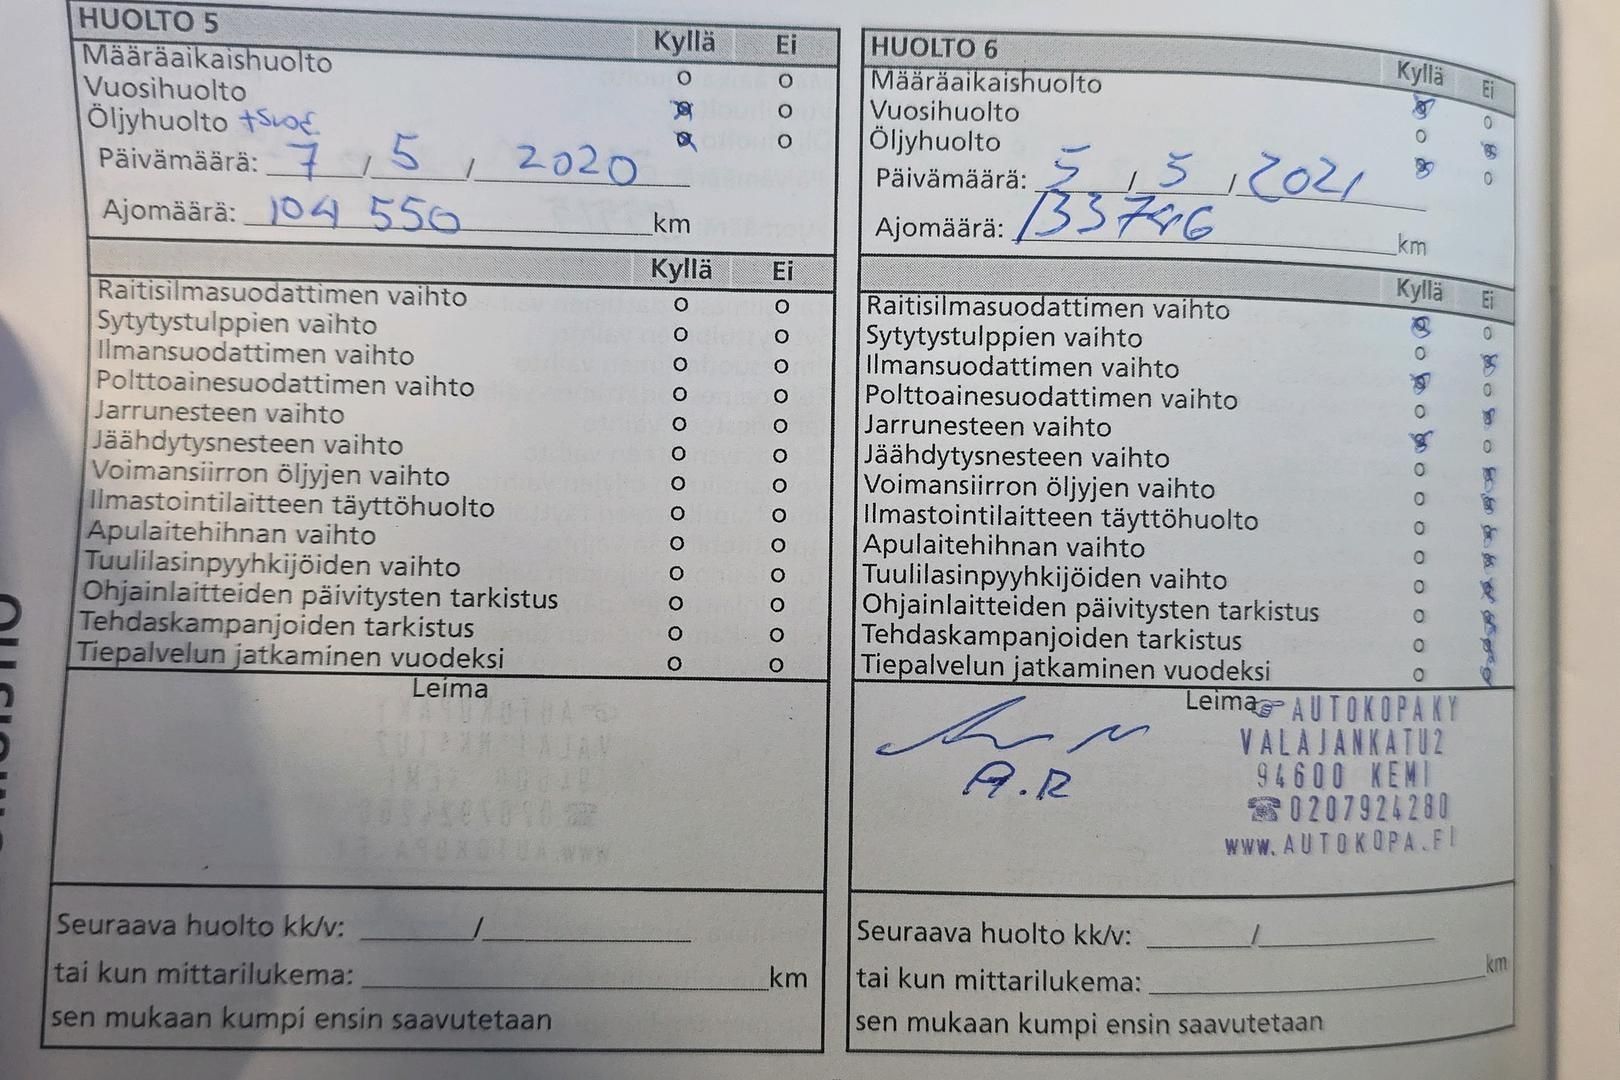 HUOLTO 5
Kyllä Ei
Määräaikaishuolto o o
Vuosihuolto o
Öljyhuolto +suod. o
Päivämäärä: 7 / 5 / 2020
Ajomäärä: 104 550 km
Kyllä Ei
Raitisilmasuodattimen vaihto o o
Sytytystulppien vaihto o o
Ilmansuodattimen vaihto o o
Polttoainesuodattimen vaihto o o
Jarrunesteen vaihto o o
Jäähdytysnesteen vaihto o o
Voimansiirron öljyjen vaihto o o
Ilmastointilaitteen täyttöhuolto o o
Apulaitehihnan vaihto o o
Tuulilasinpyyhkijöiden vaihto o o
Ohjainlaitteiden päivitysten tarkistus o o
Tehdaskampanjoiden tarkistus o o
Tiepalvelun jatkaminen vuodeksi o o
Leima
Seuraava huolto kk/v: /
tai kun mittarilukema: km
sen mukaan kumpi ensin saavutetaan
HUOLTO 6
Kyllä Ei
Määräaikaishuolto o
Vuosihuolto o
Öljyhuolto o
Päivämäärä: 5 / 5 / 2021
Ajomäärä: 133746 km
Kyllä Ei
Raitisilmasuodattimen vaihto o
Sytytystulppien vaihto o
Ilmansuodattimen vaihto o
Polttoainesuodattimen vaihto o
Jarrunesteen vaihto o
Jäähdytysnesteen vaihto o
Voimansiirron öljyjen vaihto o
Ilmastointilaitteen täyttöhuolto o
Apulaitehihnan vaihto o
Tuulilasinpyyhkijöiden vaihto o
Ohjainlaitteiden päivitysten tarkistus o
Tehdaskampanjoiden tarkistus o
Tiepalvelun jatkaminen vuodeksi o
Leima
AUTOKOPA KY
VALAJANKATU2
94600 KEMI
☎0207924280
www.AUTOKOPA.FI
A.R
Seuraava huolto kk/v: /
tai kun mittarilukema: km
sen mukaan kumpi ensin saavutetaan